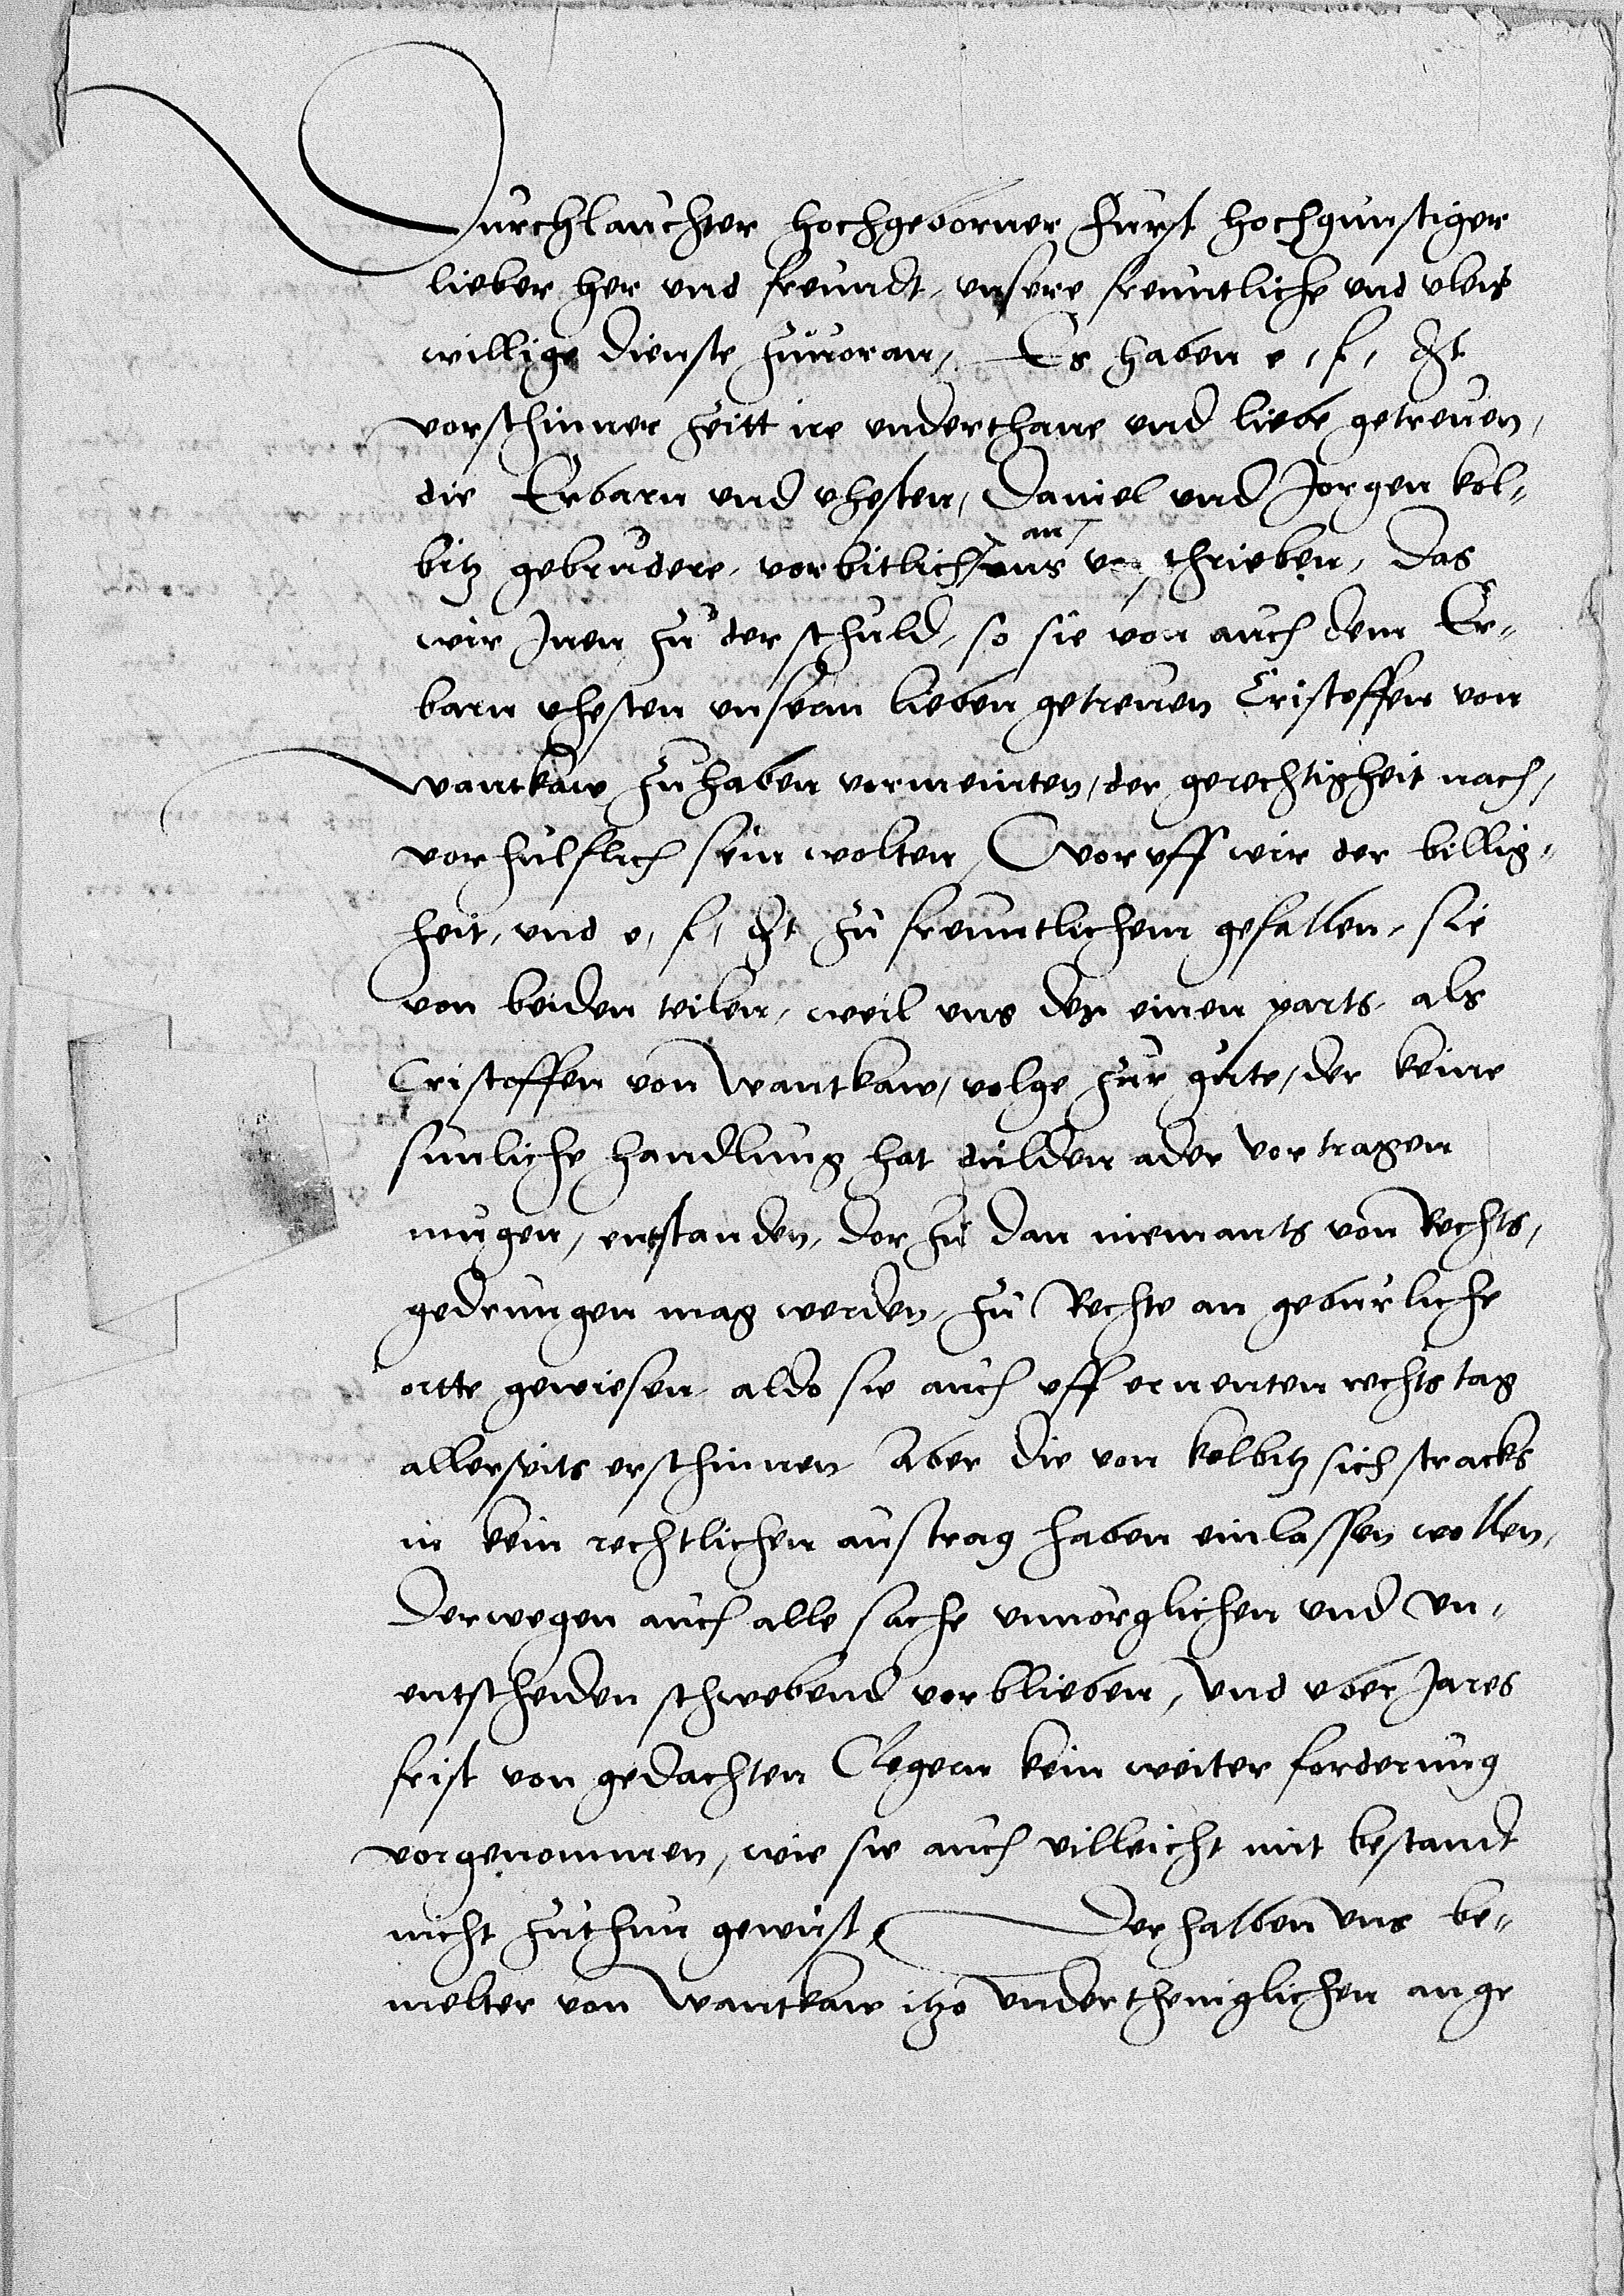 Durchlauchter hochgeborner Furst hochgunstiger
lieber her und freundt, unsere freuntliche und vleis
willige dienste zuuoran, Es haben e, f, gt
vorschinner zeitt ire underthane und liebe getreuen,
die Erbarn und vhesten, Daniel und Jorgen kol-
bitz gebrudere, vorbitlich an uns vorschrieben, das
wir Jnen zu der schuld, so sie von auch dem Er-
barn vhesten unserm lieben getreuen Cristoffen von
Wantkaw zu haben vormeinten, der gerechtigkeit nach,
vorhulflich sein wolten, Woruff wir der billig-
keit, und e, f, gt zu freuntlichem gefallen, sie
von beiden teilen, weil uns des einen parts, als
Cristoffen von Wantkaw, volge zur gute, der keine
sunliche handlung hat dulden ader vortragen
mugen, entstanden, dor zu dan niemants von Rechts,
gedrungen mag werden, zu Rechte an geburliche
ortte gewiesen, aldo sie auch uff ernenten rechtstag
allerseits erschinnen Aber die von kolbitz sich stracks
in kein rechtlichen austrag haben einlassen wollen,
Derwegen auch alle sache unuorglichen und un-
entscheiden schwebend vorblieben, und uber Jares
frist von gedachten Clegern kein weiter forderung
vorgenommen, wie sie auch villeicht mit bestandt
nicht zuthun gewust, Derhalben uns be-
melter von Wantkaw itzo undertheniglichen ange